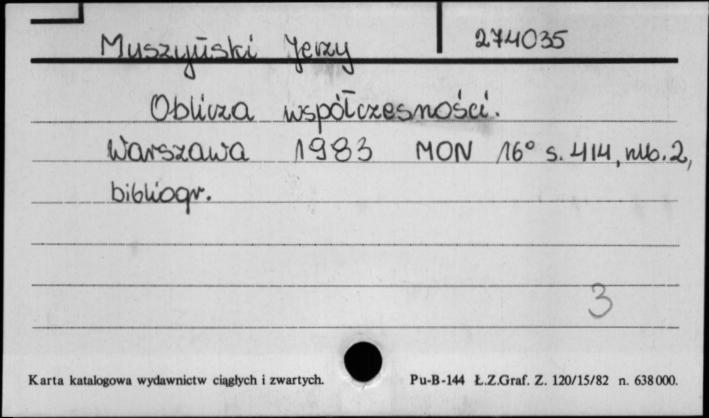 Muszyński Jerzy 274035
Oblicza współczesności.
Warszawa 1983 MON 16° s. 414, nlb. 2,
bibliogr.
3
Karta katalogowa wydawnictw ciągłych i zwartych. Pu-B-144 Ł.Z.Graf. Z. 120/15/82 n. 638000.